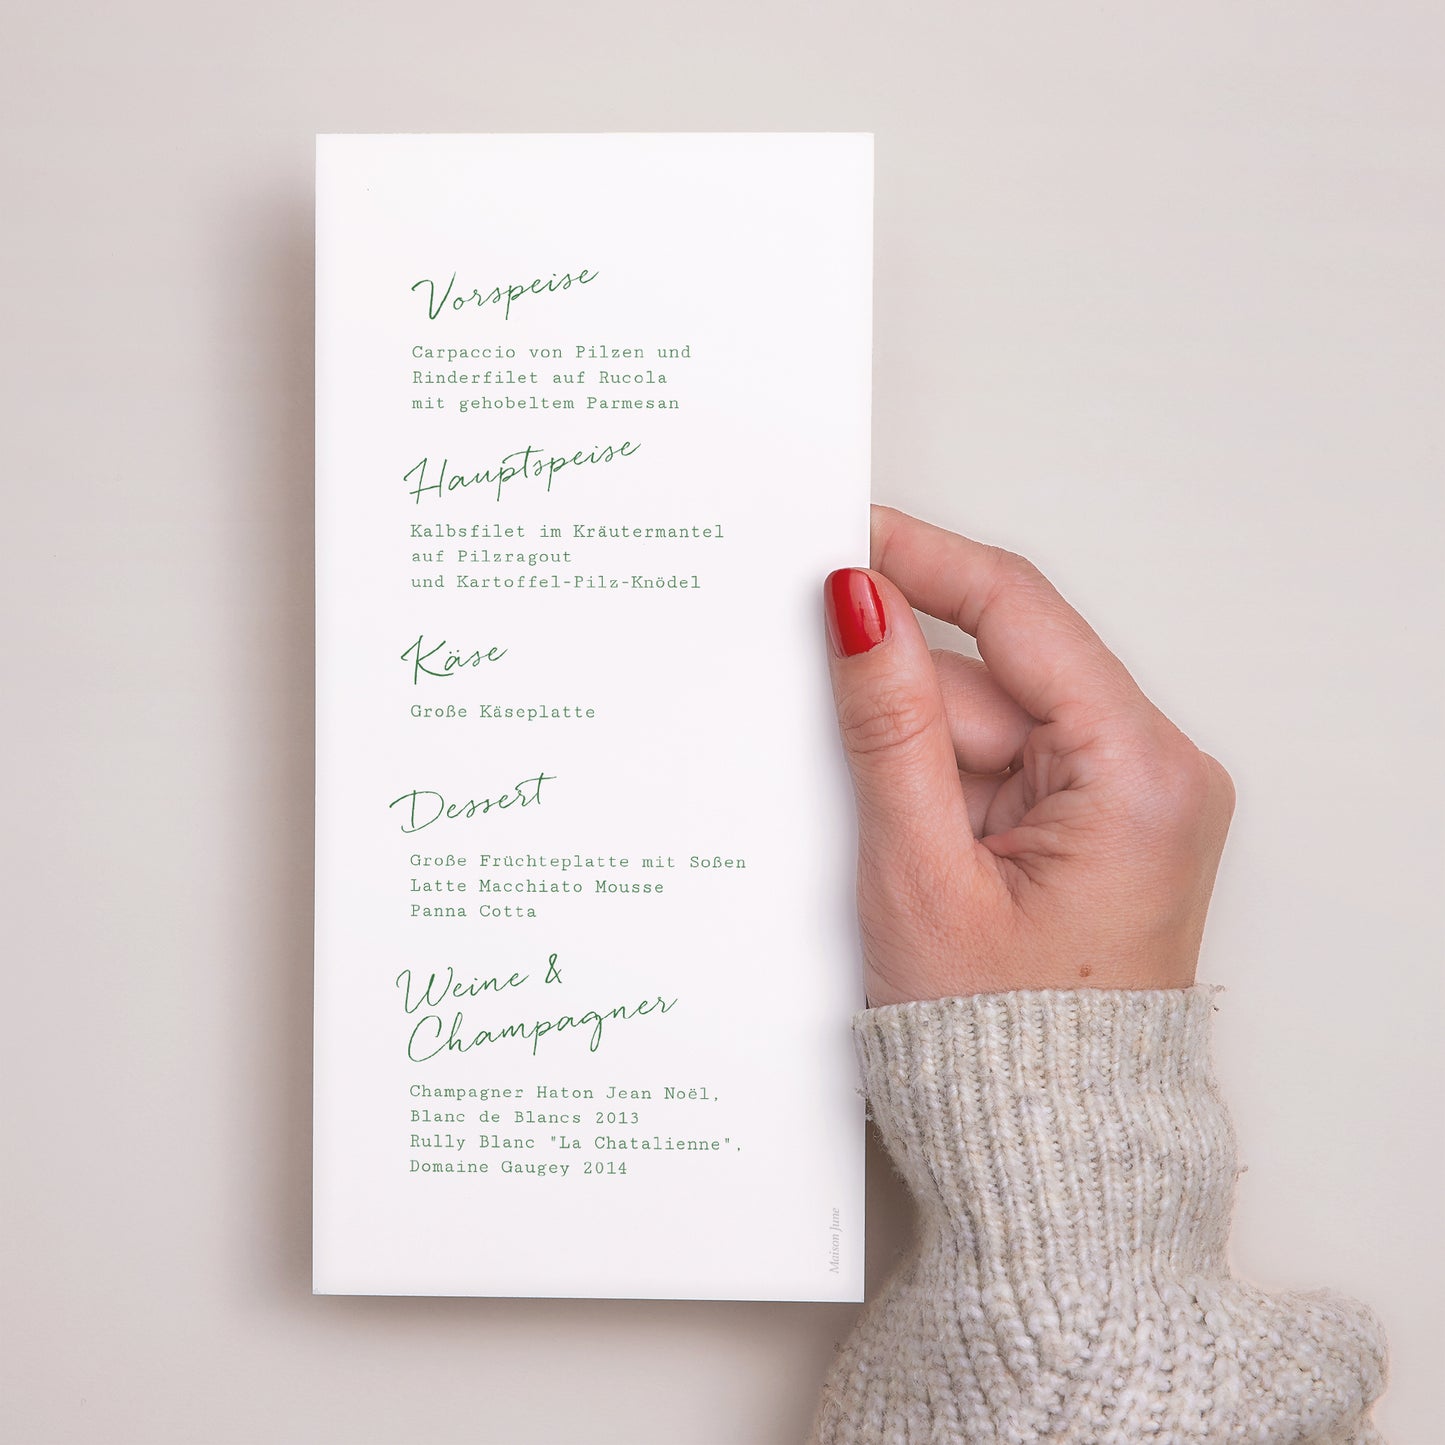 Vorspeise
Carpaccio von Pilzen und
Rinderfilet auf Rucola
mit gehobeltem Parmesan
Hauptspeise
Kalbsfilet im Kräutermantel
auf Pilzragout
und Kartoffel-Pilz-Knödel
Käse
Große Käseplatte
Dessert
Große Früchteplatte mit Soßen
Latte Macchiato Mousse
Panna Cotta
Weine &
Champagner
Champagner Haton Jean Noël,
Blanc de Blancs 2013
Rully Blanc "La Chatalienne",
Domaine Gaugey 2014
Maison June